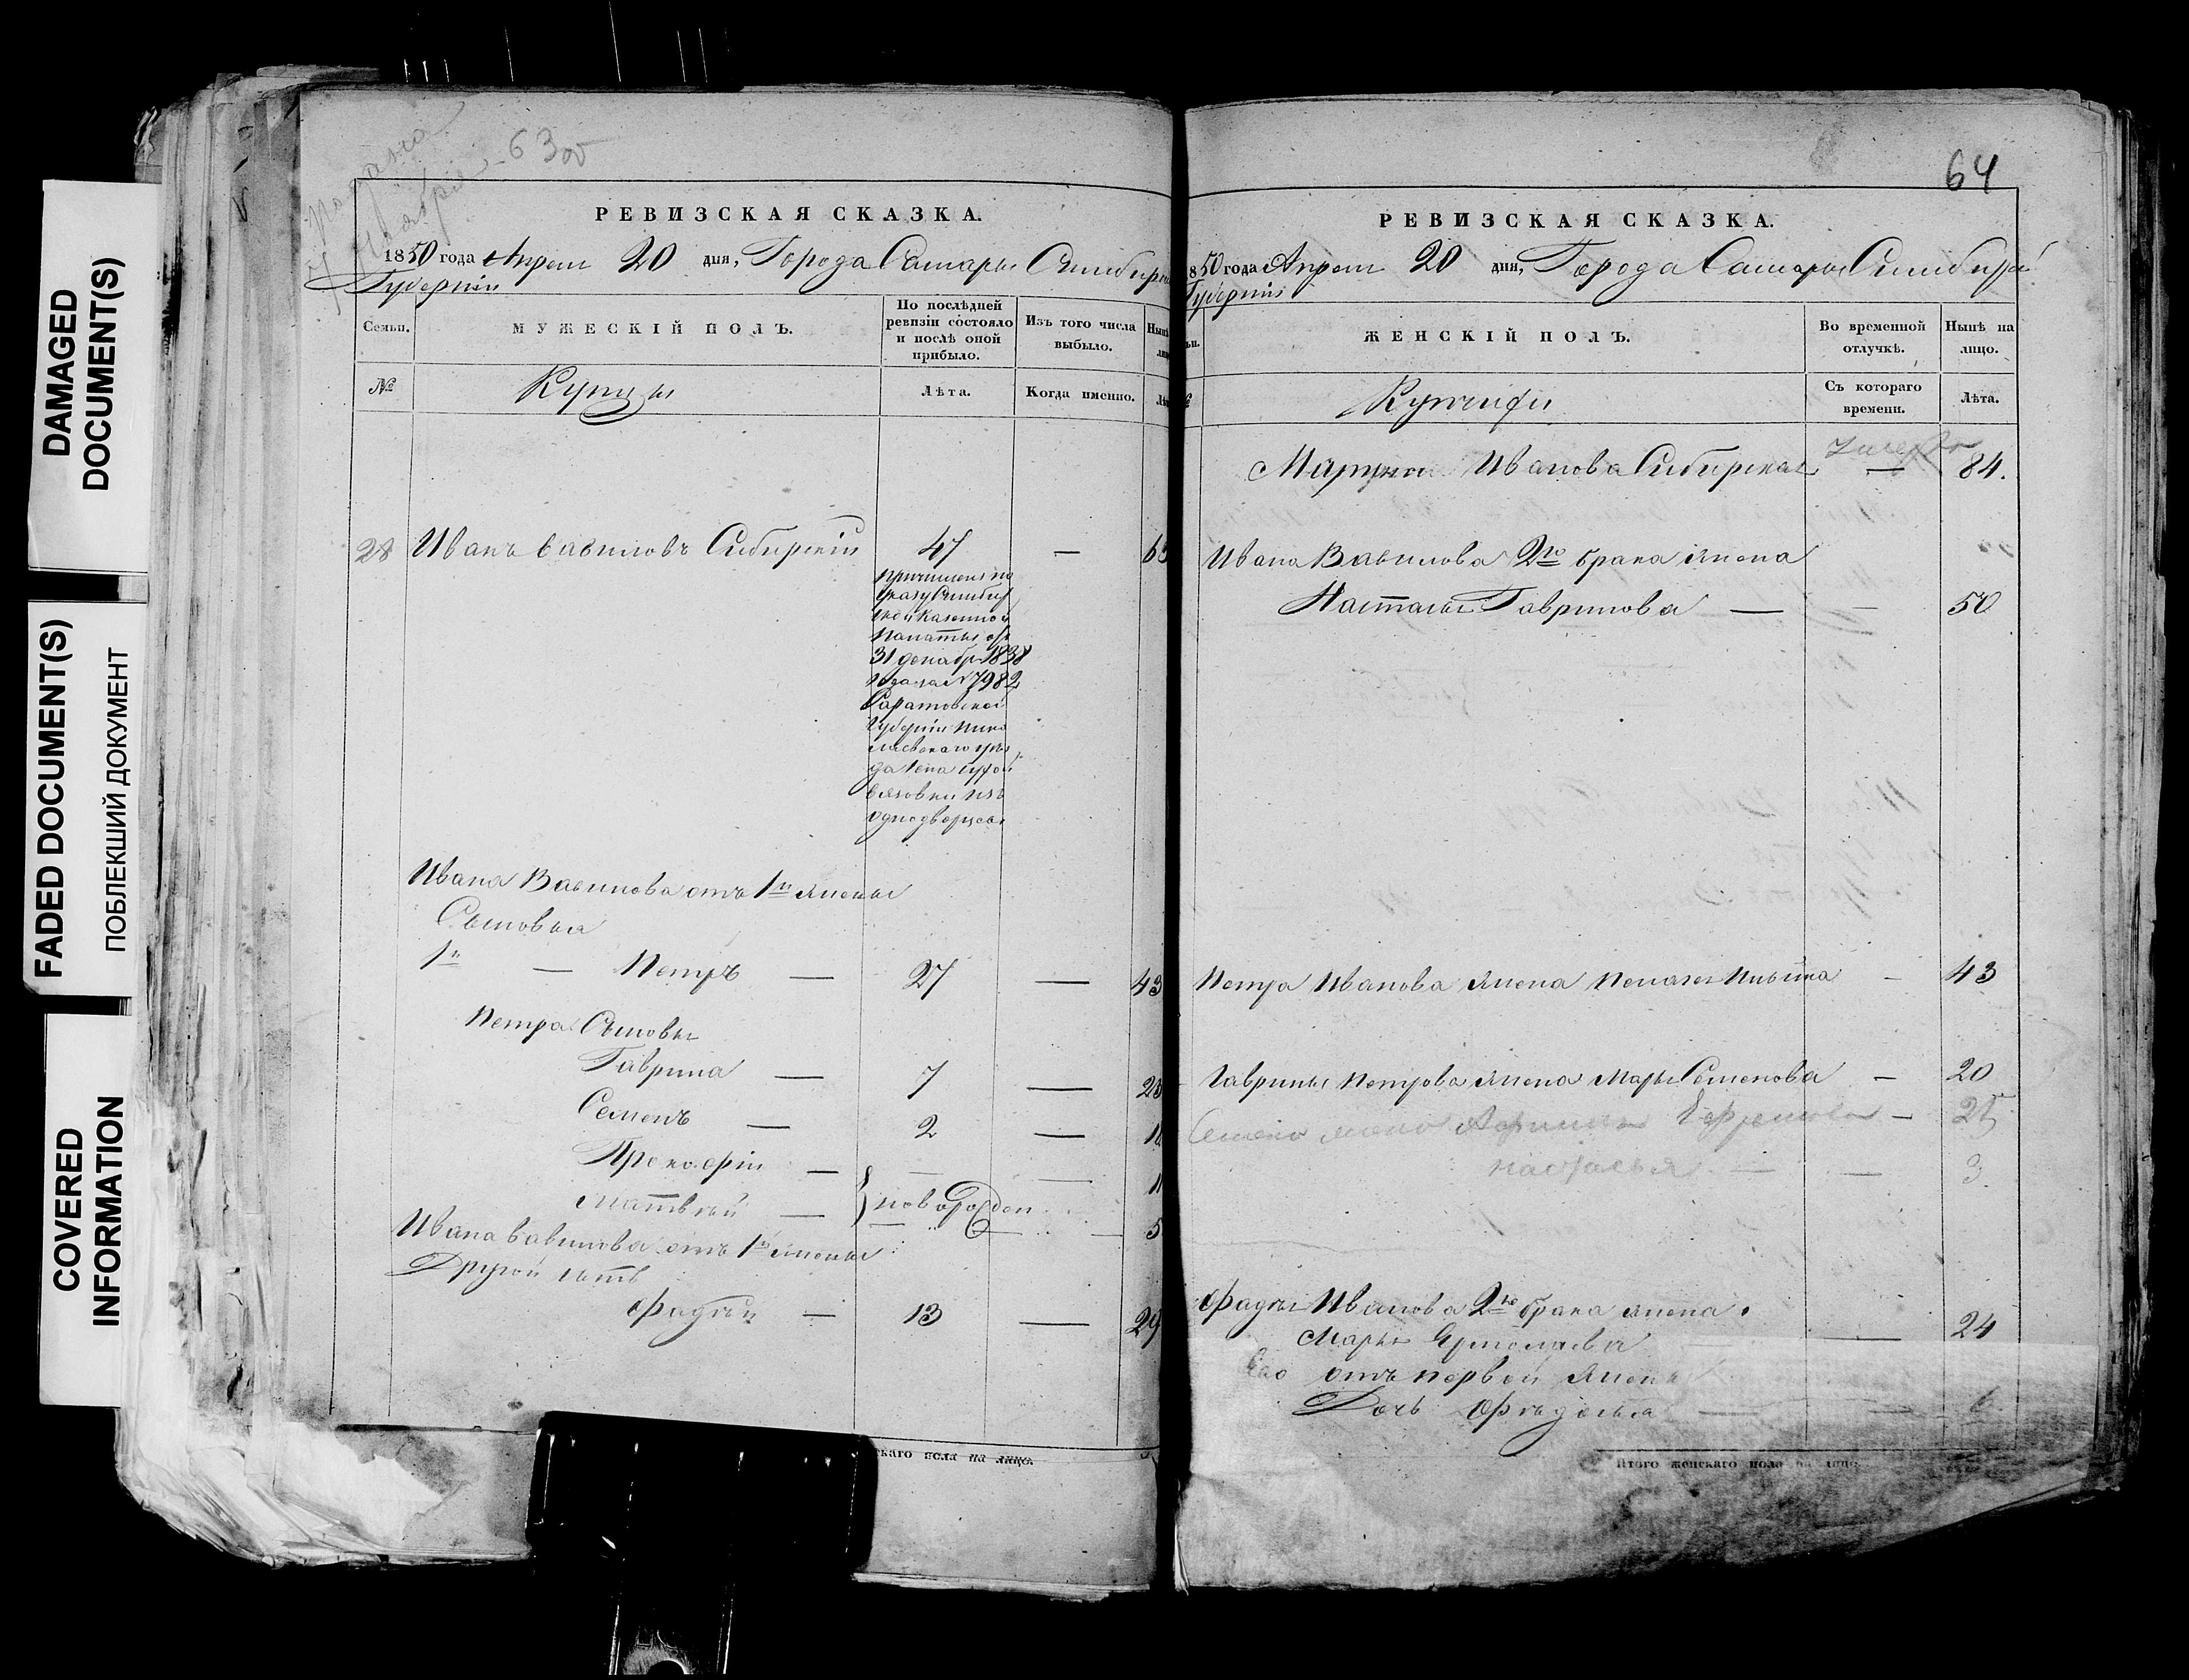 DAMAGED
DOCUMENT(S)
FADED DOCUMENT(S)
ПОБЛЕКШИЙ ДОКУМЕНТ
COVERED
INFORMATION
63 об
РЕВИЗСКАЯ СКАЗКА.
1850 года Апреля 20 дня, Города Самары Симбирск
Губерніи
Семьи.
МУЖЕСКІЙ ПОЛЪ.
По послѣдней
ревизіи состояло
и послѣ оной
прибыло.
Изъ того числа
выбыло.
№
Купцы
Лѣта.
Когда именно.
28 Иванъ Вавиловъ Сибирскій 47 — 63
причисленъ по
Указу Симбир
ской Казенной
Палаты отъ
31 декабря 1838
года за № 7982
Саратовской
Губерніи Нико
лаевскаго уѣз
да села Сухой
Вязовки изъ
однодворцовъ
Ивана Вавилова отъ 1й жены
Сыновья
1й — Петръ — 27 — 43
Петра Сыновья
Гаврила — 7 — 23
Семенъ — 2 — 18
Прокофій —
Матвѣй — новорожден 5
Ивана Вавилова отъ 1й жены
Другой сынъ
Фадѣй — 13 — 29
скаго пола на лицо.
64
РЕВИЗСКАЯ СКАЗКА.
1850 года Апреля 20 дня, Города Самары Симбирской
Губерніи
ЖЕНСКІЙ ПОЛЪ.
Во временной
отлучкѣ.
Нынѣ на
лицо.
Купчихи
Съ котораго
времени.
Лѣта.
Иванова Сибирская — 84.
Ивана Вавилова 2го брака жена
Настасья Гаврилова — — 50
Петра Иванова жена Пелагея Ильина — 43
Гаврилы Петрова жена Марья Семенова — 20
Семена жена Ефремова — 25
Настасья — — 3
Фадѣя Иванова 2го брака жена
Марья Ермолаева — 24
Его отъ первой жены
Дочь Фѣдосья — — 6
Итого женскаго пола на лицо.